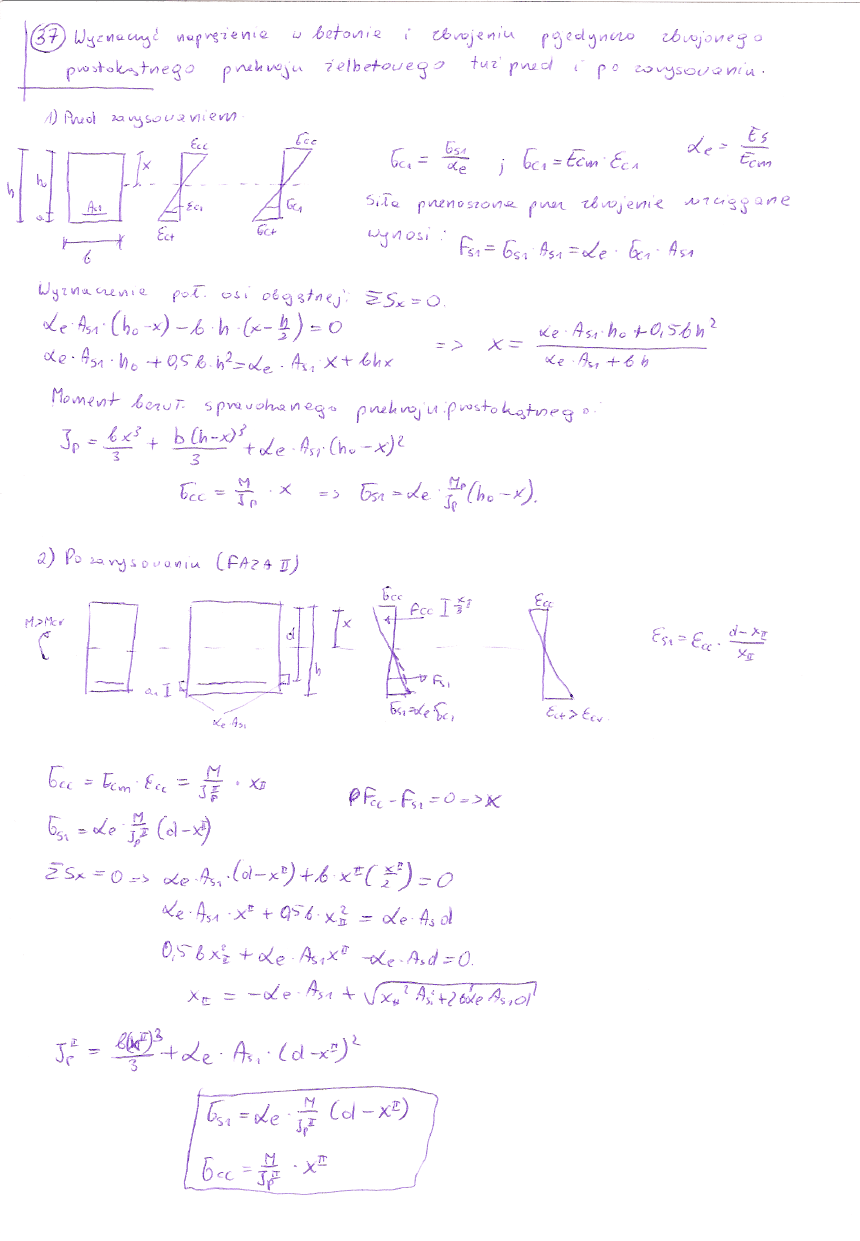 37 Wyznaczyć naprężenie w betonie i zbrojeniu pojedynczo zbrojonego
prostokątnego przekroju żelbetowego tuż przed i po zarysowaniu.
1) Przed zarysowaniem
h h₀ a As1 b x
εcc εc1 εct
σcc σc1 σct
σc1 = σs1/αe ; σc1 = Ecm · εc1 αe = Es/Ecm
Siła przenoszona przez zbrojenie rozciągane
wynosi: Fs1 = σs1 · As1 = αe · σc1 · As1
Wyznaczenie poł. osi obojętnej: ΣSx = 0.
αe·As1·(h₀-x) – b·h·(x-h/2) = 0
αe·As1·h₀ + 0,5b·h² = αe·As1·x + bhx => x = (αe·As1·h₀ + 0,5bh²)/(αe·As1 + bh)
Moment bezwł. sprowadzonego przekroju prostokątnego:
Jp = bx³/3 + b(h-x)³/3 + αe·As1·(h₀-x)²
σcc = M/Jp · x => σs1 = αe · Mp/Jp (h₀-x).
2) Po zarysowaniu (FAZA II)
M>Mcr a₁ αe·As1 d h x
σcc Fcc x/3 Fs1 σs1=αe σc1
εcc εct > εcr
εs1 = εcc · (d-xII)/xII
σcc = Ecm · εcc = M/JpII · xII
Fcc – Fs1 = 0 => x
σs1 = αe · M/JpII (d-xII)
ΣSx = 0 => αe·As1·(d-xII) + b·xII(xII/2) = 0
αe·As1·xII + 0,5b·xII² = αe·As d
0,5bxII² + αe·As1xII - αe·Asd = 0.
xII = -αe·As1 +
JpII = b(xII)³/3 + αe·As1·(d-xII)²
σs1 = αe · M/JpII (d-xII)
σcc = M/JpII · xII